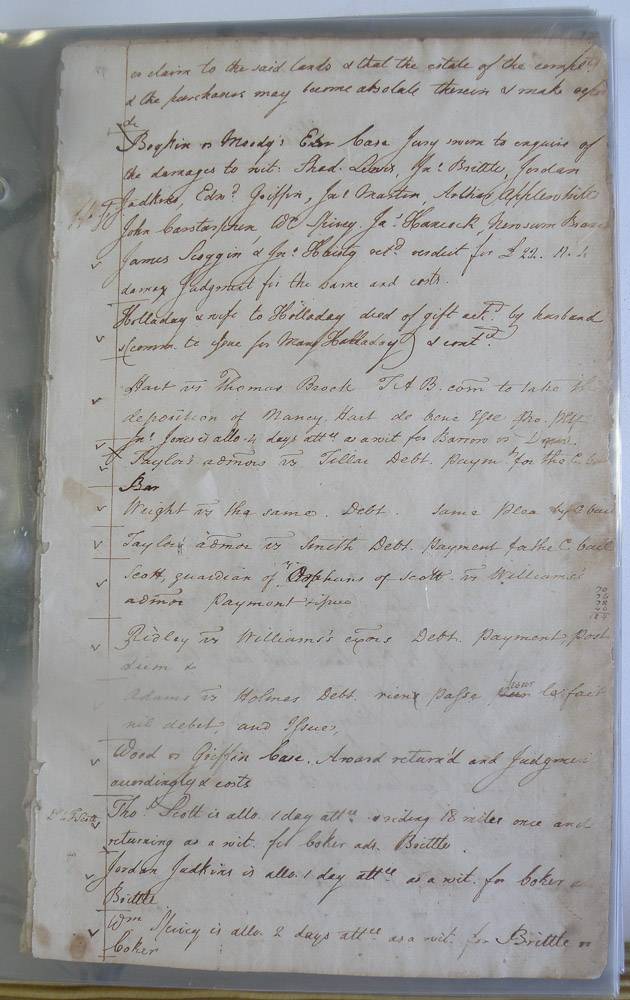 or claim to the said lands & that the estate of the
& the purchaser may become absolute therein & make
&c
Boykin vs Moody's Exr Case Jury sworn to enquire of
the damages to wit. Thad. Lewis, Jno. Brittle, Jordan
Judkins, Edmd. Griffin, Jas. Martin, Arthur Applewhite
John Carstarphen, Wm Spivey, Jas. Hancock, Newsum Branch
James Scoggin & Jno. Haisty retd. verdict for £ 22.
damag Judgment for the same and costs.
Holladay & wife to Holladay deed of gift ackd. by husband
(comm. to issue for Mary Holladay) & contd.
Hart vs Thomas Brock T A B. com to take the
deposition of Nancy Hart de bene Esse pro. Pltf
Jno. Jones is allo. 4 days attce as a wit for Barrow vs
Taylor's admors vs Tillar Debt. Paymt. for the C. bail
Bar
Wright vs the same. Debt. same Plea by C bail
Taylor's admor vs Smith Debt. Payment for the C. bail
Scott, guardian of ye Orphans of Scott vs Williams's
admor Payment & issue
70
76
78
Ridley vs Williams's exors Debt Payment, post
diem &
Adams vs Holmes Debt. riens Passe le fait
nil debet, and Issues,
Wood vs Griffin Case. Award return'd and Judgment
accordingly & costs
Tho. Scott is allo. 1 day attce. & riding 18 miles once and
returning as a wit. for Coker ads. Brittle.
Jordan Judkins is allo. 1 day attce as a wit. for Coker
Brittle
Wm Spivey is allo. 2 days attce as a wit. for Brittle vs
Coker